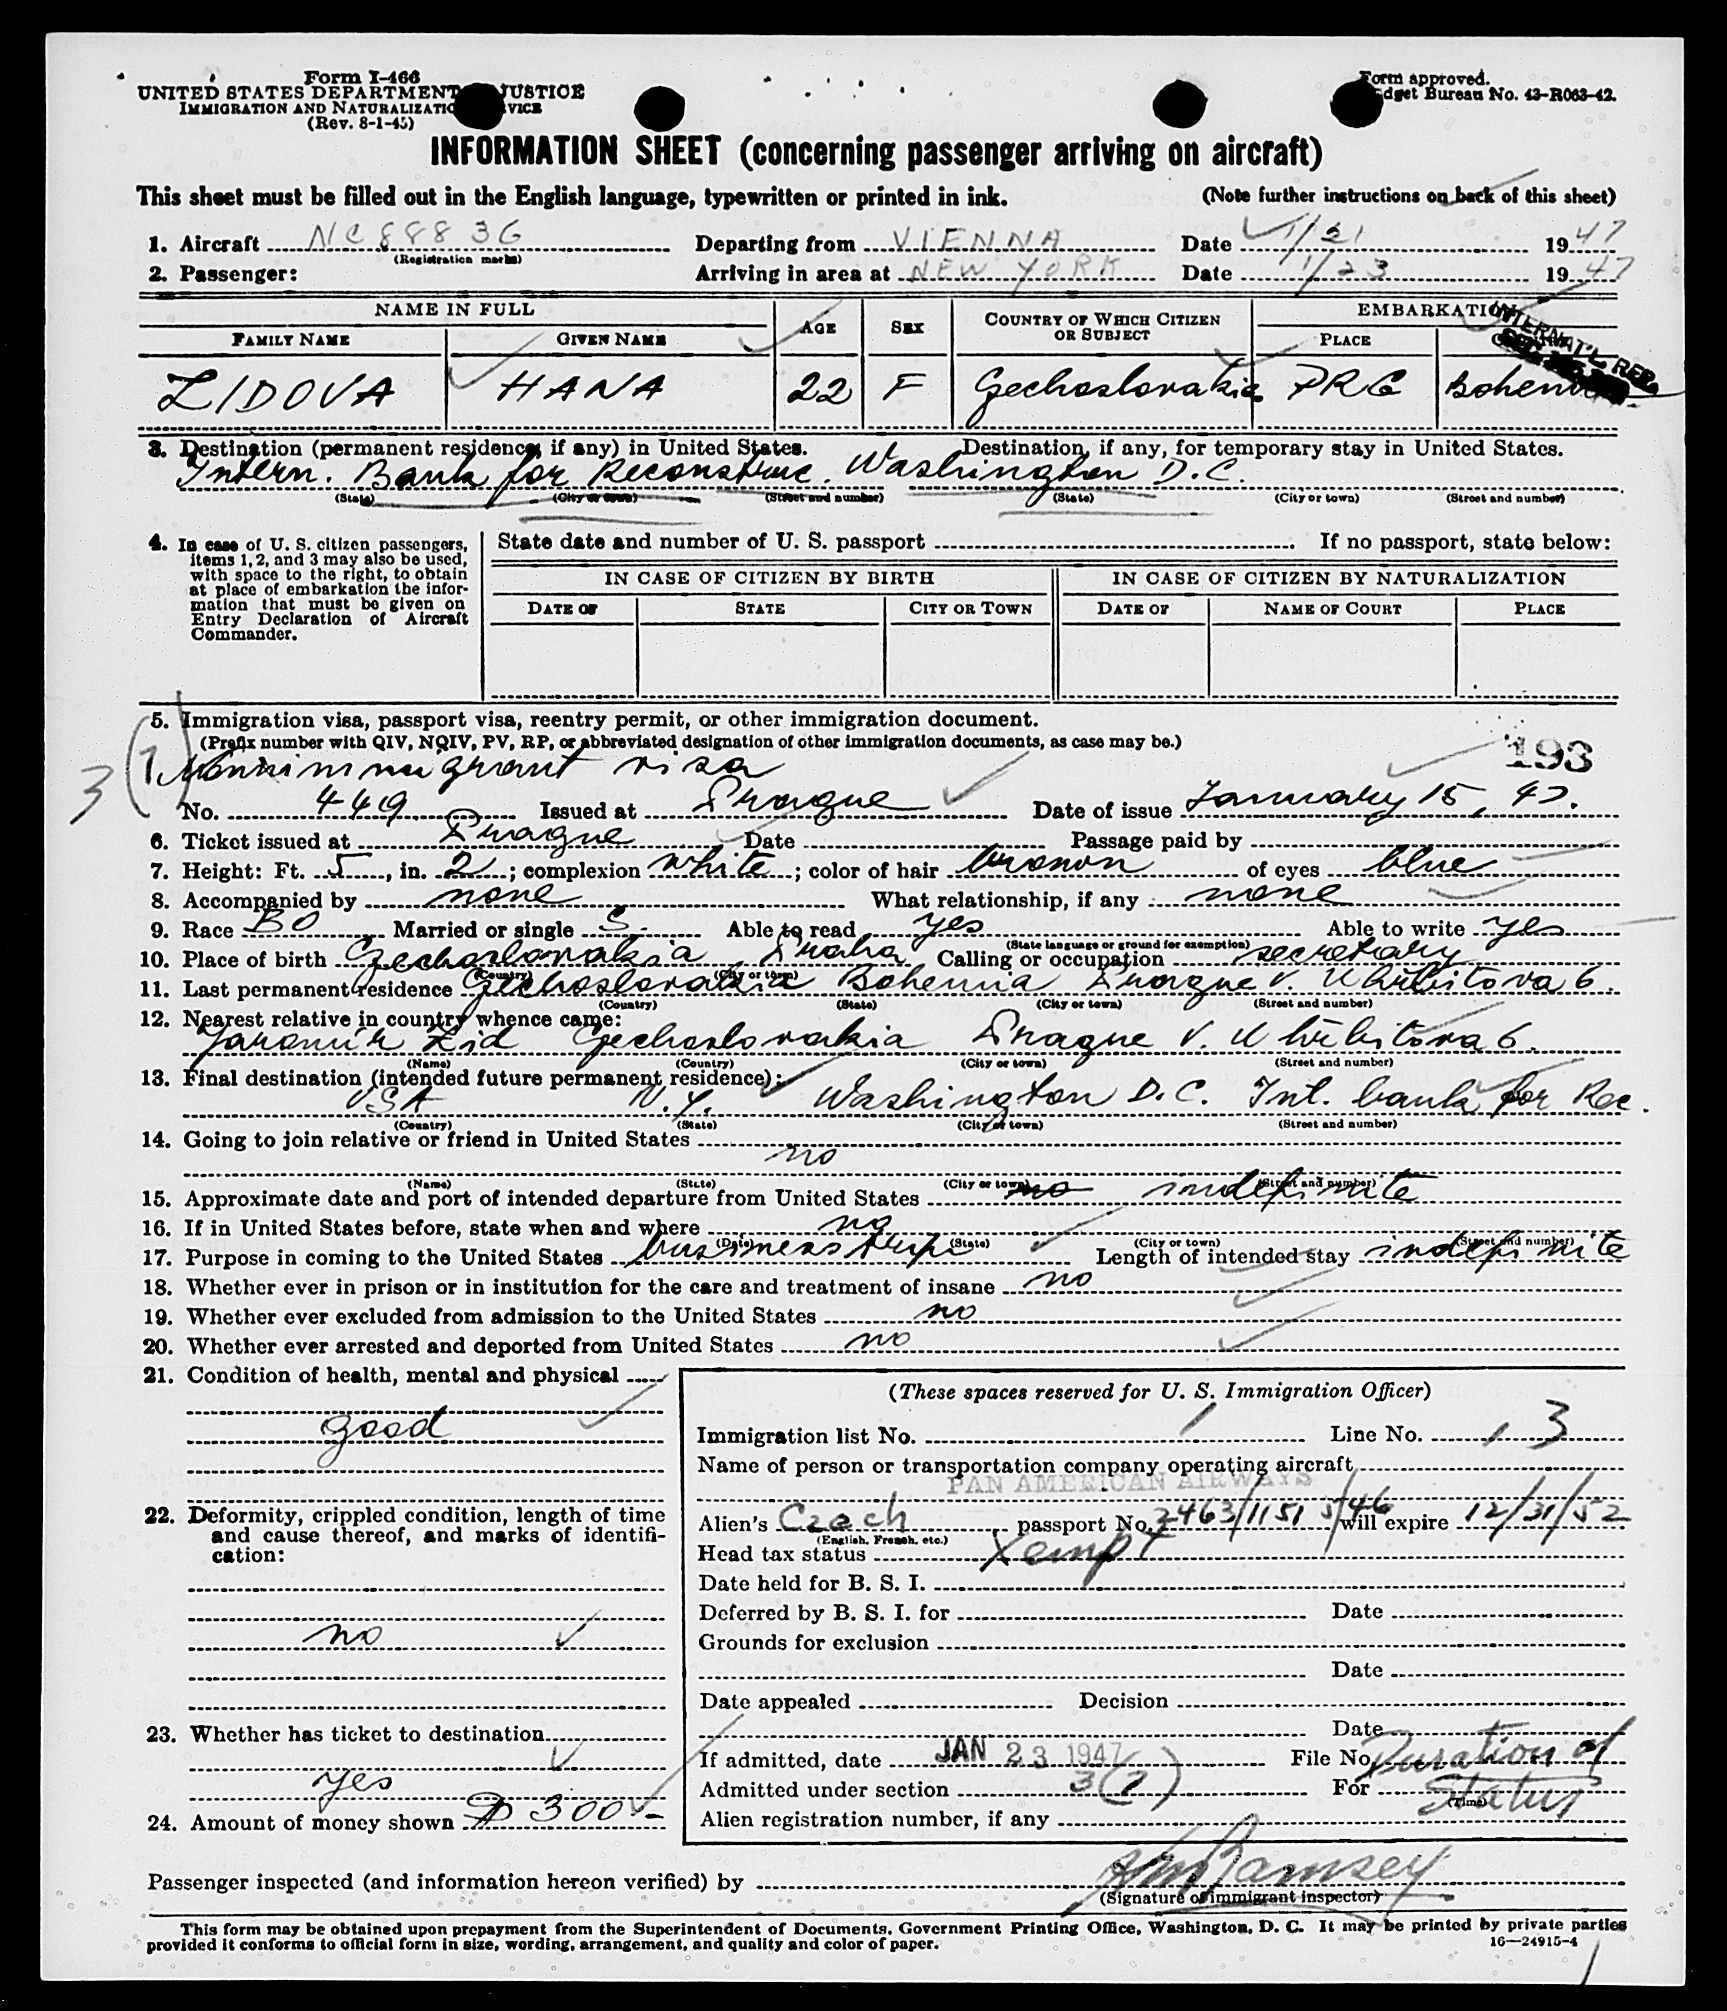 Form I-466
UNITED STATES DEPARTMENT JUSTICE
IMMIGRATION AND
(Rev. 8-1-45)
Form approved.
Bureau No. 43-R063-42.
INFORMATION SHEET (concerning passenger arriving on aircraft)
This sheet must be filled out in the English language, typewritten or printed in ink. (Note further instructions on back of this sheet)
1. Aircraft NC88836 Departing from VIENNA Date 1/21 1947
(Registration marks)
2. Passenger: Arriving in area at NEW YORK Date 1/23 1947
NAME IN FULL AGE SEX COUNTRY OF WHICH CITIZEN OR SUBJECT EMBARKATION
FAMILY NAME GIVEN NAME PLACE
INTERNAT'L REP.
HANA 22 F PRG
3. Destination (permanent residence, if any) in United States. Destination, if any, for temporary stay in United States.
Intern. Bank for Reconstruc. Washington D.C.
(State) (City or town) (Street and number) (State) (City or town) (Street and number)
4. In case of U. S. citizen passengers, items 1, 2, and 3 may also be used, with space to the right, to obtain at place of embarkation the information that must be given on Entry Declaration of Aircraft Commander.
State date and number of U. S. passport If no passport, state below:
IN CASE OF CITIZEN BY BIRTH IN CASE OF CITIZEN BY NATURALIZATION
DATE OF STATE CITY OR TOWN DATE OF NAME OF COURT PLACE
5. Immigration visa, passport visa, reentry permit, or other immigration document.
(Prefix number with QIV, NQIV, PV, RP, or abbreviated designation of other immigration documents, as case may be.) 193
3(7) visa
No. 449 Issued at Prague Date of issue January 15, 47.
6. Ticket issued at Prague Date Passage paid by
7. Height: Ft. 5, in. 2; complexion white; color of hair of eyes blue
8. Accompanied by none What relationship, if any none
9. Race BO Married or single S. Able to read yes Able to write yes
(State language or ground for exemption)
10. Place of birth Czechoslovakia Praha Calling or occupation secretary
(Country) (City or town)
11. Last permanent residence Czechoslovakia Bohemia Prague V. 6.
(Country) (State) (City or town) (Street and number)
12. Nearest relative in country whence came:
Czechoslovakia Prague V. 6.
(Name) (Country) (City or town) (Street and number)
13. Final destination (intended future permanent residence):
USA N.Y. Washington D.C. Int. bank for Rec.
(Country) (State) (City or town) (Street and number)
14. Going to join relative or friend in United States
no
(Name) (State) (City or town) (Street and number)
15. Approximate date and port of intended departure from United States no indefinite
16. If in United States before, state when and where no
(Date) (State) (City or town) (Street and number)
17. Purpose in coming to the United States business trip Length of intended stay indefinite
18. Whether ever in prison or in institution for the care and treatment of insane no
19. Whether ever excluded from admission to the United States no
20. Whether ever arrested and deported from United States no
21. Condition of health, mental and physical
good
22. Deformity, crippled condition, length of time and cause thereof, and marks of identification:
no
23. Whether has ticket to destination
yes
24. Amount of money shown $ 300 -
(These spaces reserved for U. S. Immigration Officer)
Immigration list No. 1 Line No. 13
Name of person or transportation company operating aircraft
PAN AMERICAN AIRWAYS
Alien's Czech passport No. 2463/1151 5/46 will expire 12/31/52
(English, French, etc.)
Head tax status Xempt
Date held for B. S. I.
Deferred by B. S. I. for Date
Grounds for exclusion
Date
Date appealed Decision
Date
If admitted, date JAN 23 1947 File No. Duration of
Admitted under section 3(7) For Status
(Time)
Alien registration number, if any
Passenger inspected (and information hereon verified) by Ramsey
(Signature of immigrant inspector)
This form may be obtained upon prepayment from the Superintendent of Documents, Government Printing Office, Washington, D. C. It may be printed by private parties
provided it conforms to official form in size, wording, arrangement, and quality and color of paper. 16—24915-4